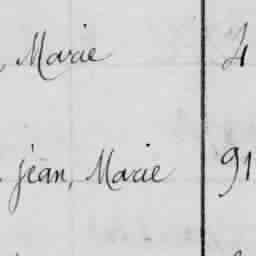 , Marie 4
Jean, Marie 91